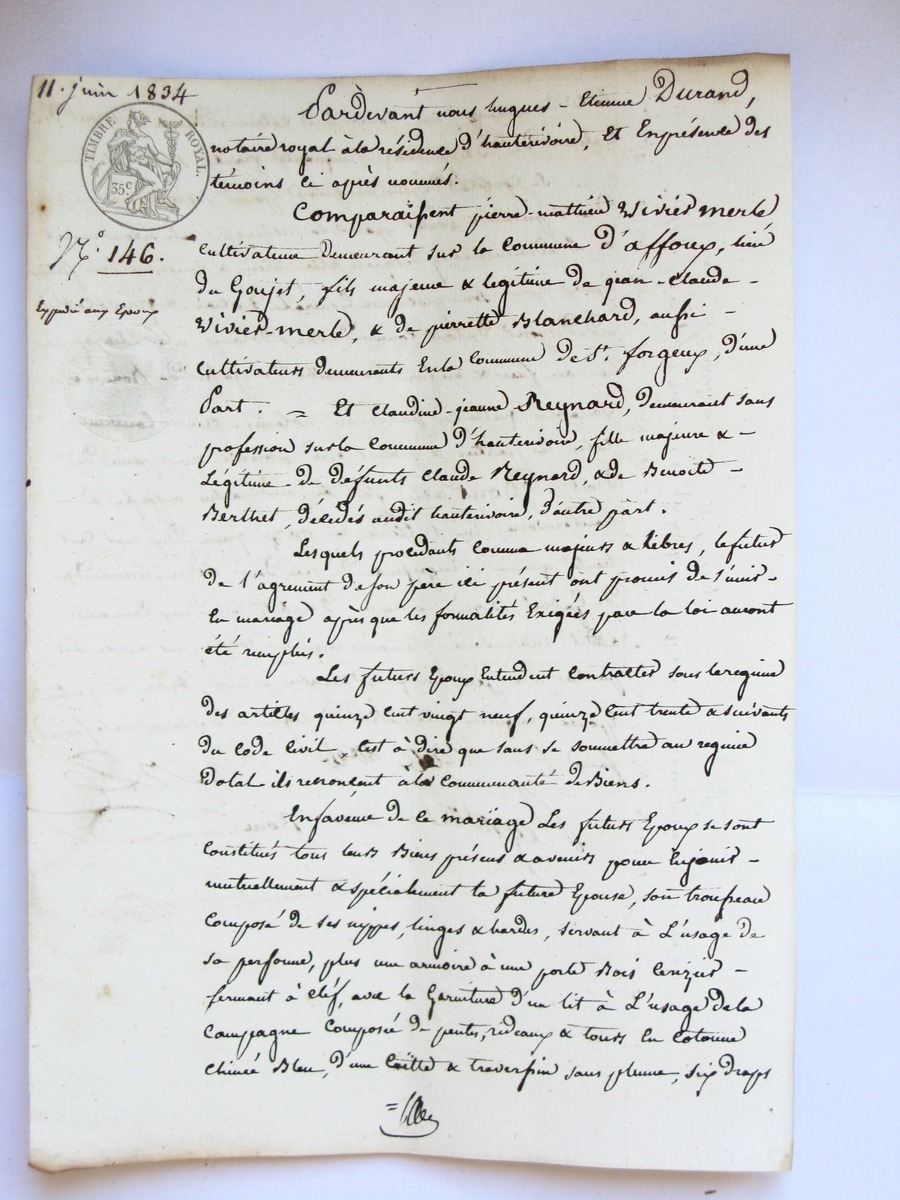 11. juin 1834
TIMBRE ROYAL.
35c.
N.° 146.
Expédié aux Epoux
Pardevant nous hugues - Etienne Durand,
notaire royal à la résidence d'hauterivoire, Et En présence des
témoins ci après nommés.
Comparaissent pierre-mathieu Vivier merle
cultivateur demeurant sur la commune d'affoux, lieu
du Goujet, fils majeur & légitime de jean-claude -
Vivier-merle, & de pierrette Blanchard, aussi -
cultivateurs demeurants En la commune de St. forgeux, d'une
Part. = Et claudine-jeanne Reynard, demeurant sans
profession sur la commune d'hauterivoire, fille majeure & -
Légitime de défunts claude Reynard, & de Benoite -
Berthet, décédés audit hauterivoire, d'autre part.
Lesquels procédants comme majeurs & libres, le futur
de l'agrément de son père ici présent ont promis de s'unir -
En mariage après que les formalités Exigées par la loi auront
été remplies.
Les futurs Epoux Entendent contracter sous le regime
des articles quinze cent vingt neuf, quinze cent trente & suivants
du code civil, c'est à dire que sans se soumettre au regime
dotal ils renoncent à la communauté de Biens.
En faveur de ce mariage Les futurs Epoux se sont
constitués tous leurs Biens présens & avenirs pour En jouir -
mutuellement & spécialement la future Epouse, son trousseau
composé de ses nippes, linges & hardes, servant à L'usage de
sa personne, plus une armoire à une porte Bois cerizier -
fermant à clef, avec la Garniture d'un lit à L'usage de la
campagne composé de pentes, rideaux & tours En cotonne
chinée Bleu, d'une coëtte & traversin sans plume, six draps